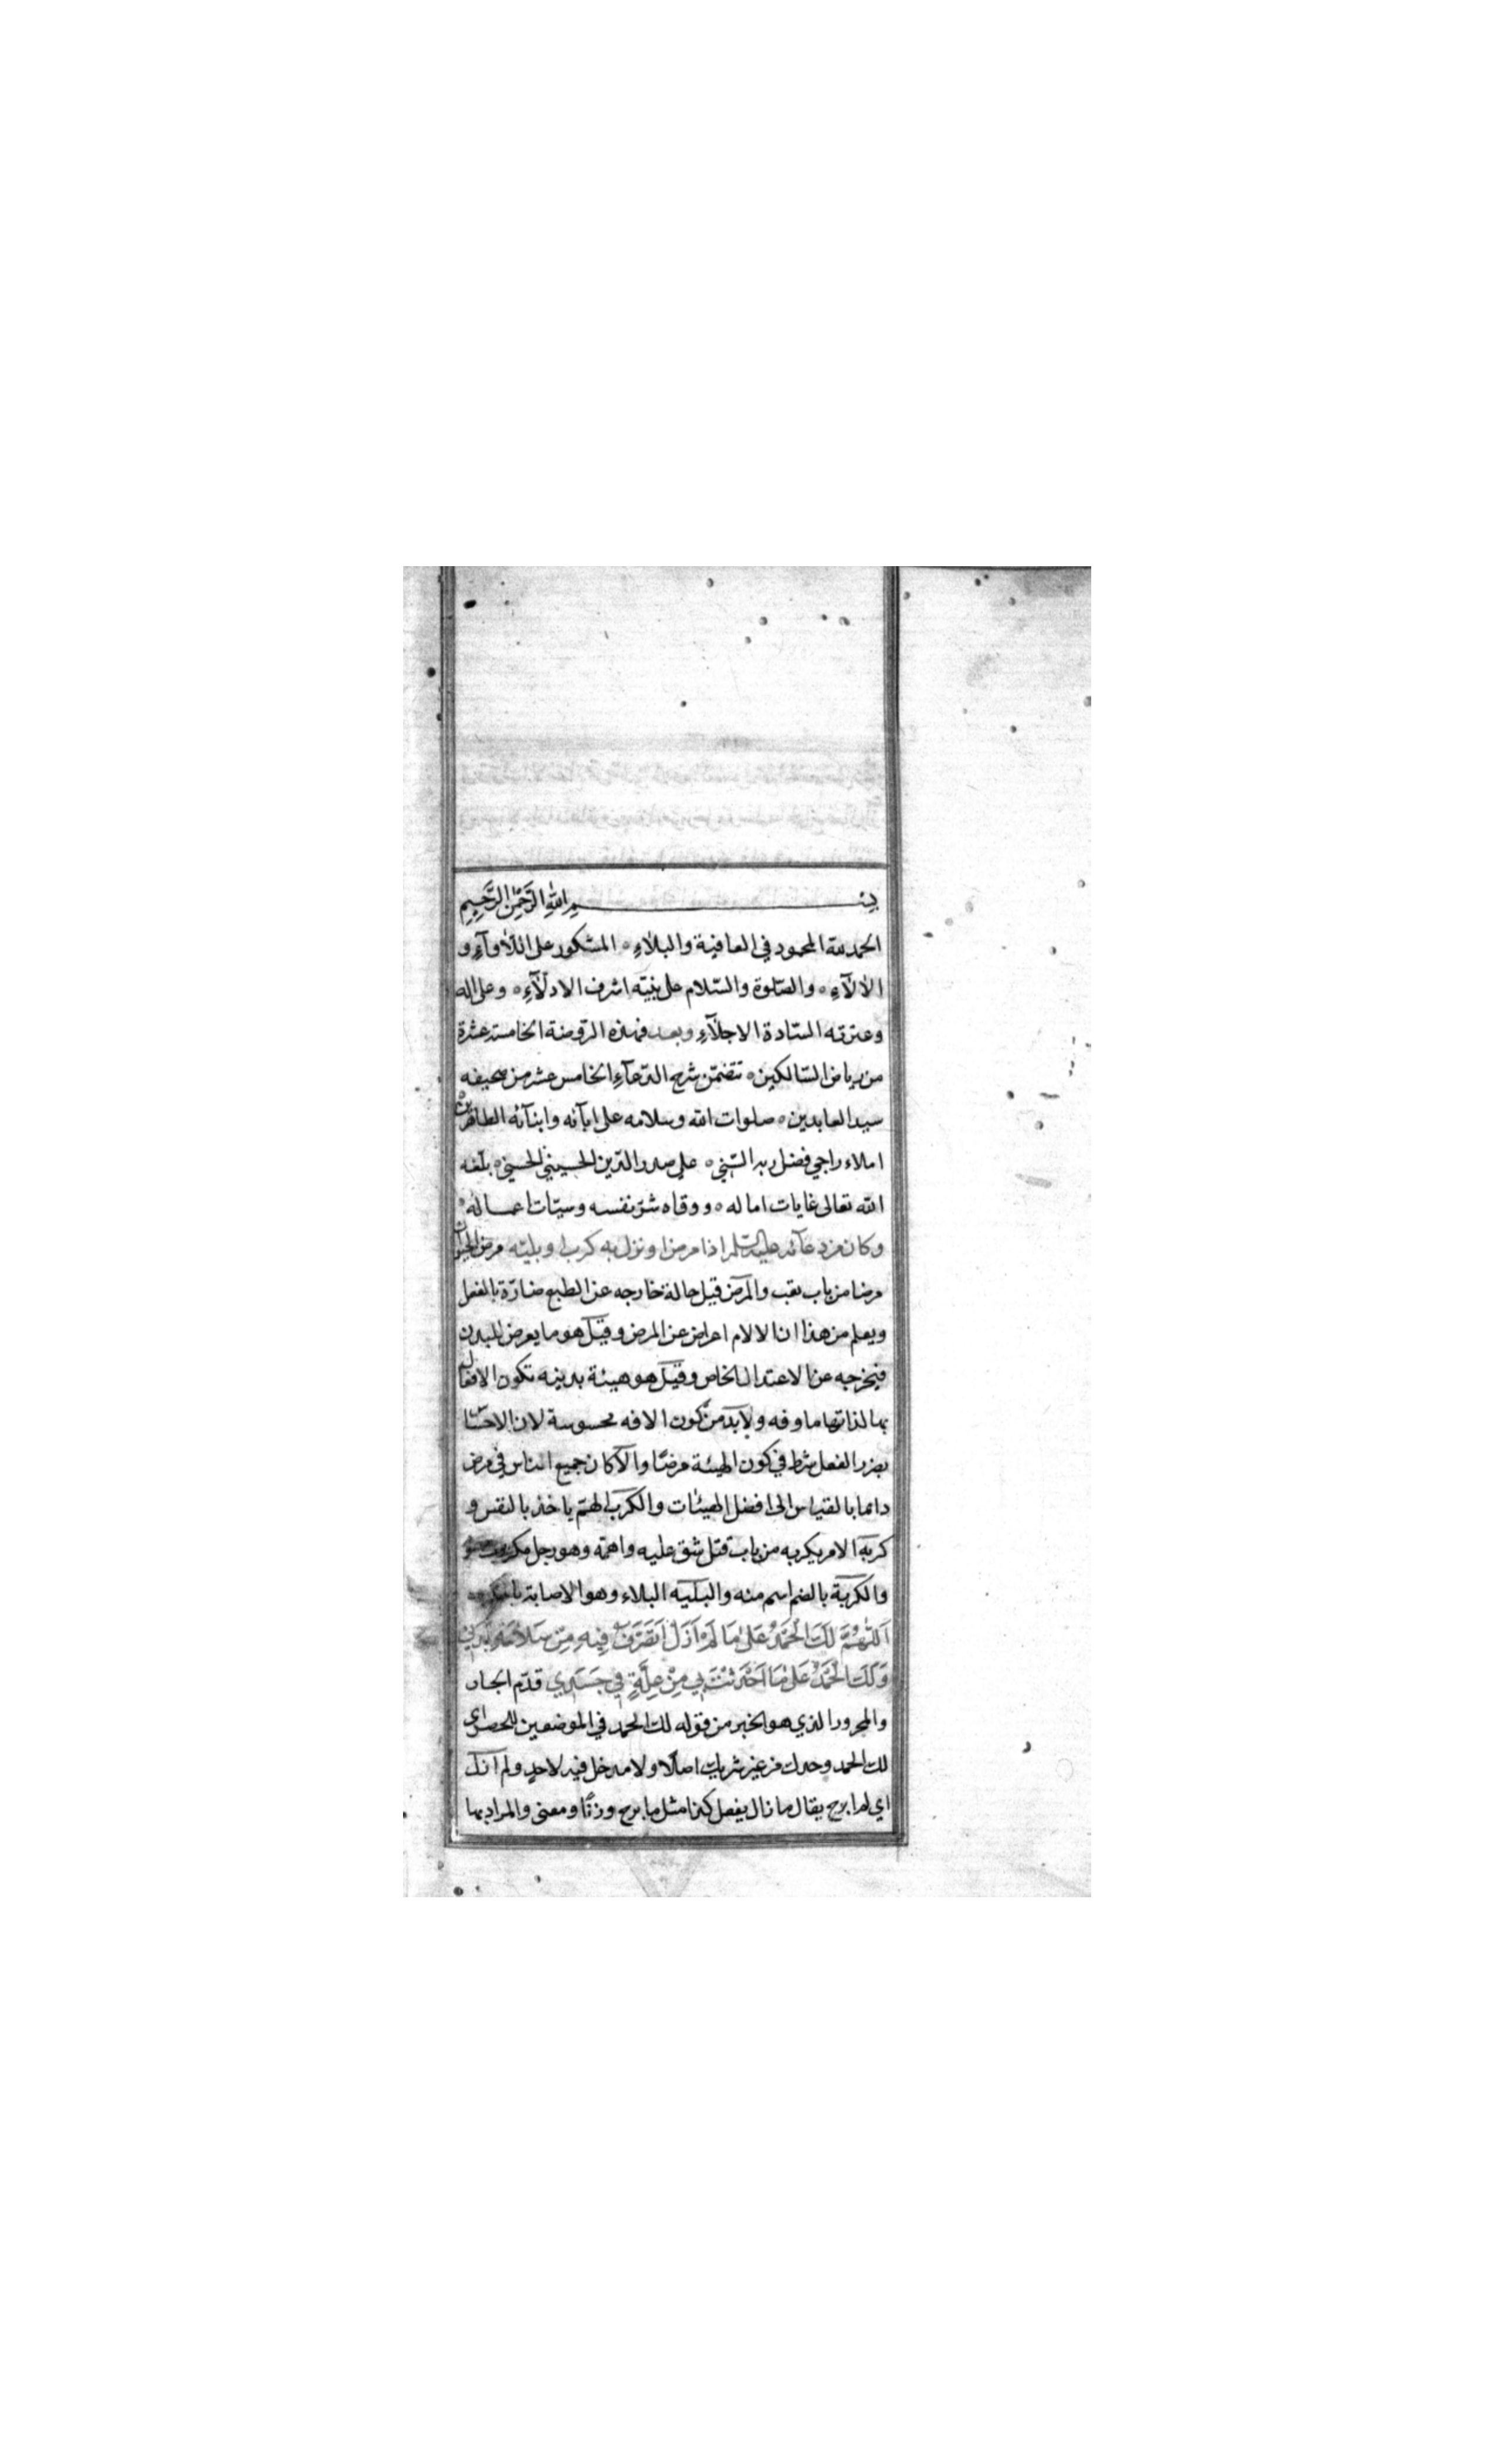 بسم الله الرحمن الرحيم
الحمد لله المحمود في العافية والبلاء ه المشكور على اللأوآء و
الالآء ه والصلوة والسلام على نبيه اشرف الادلآء ه وعلى اله
وعترته السادة الاجلآء وبعد فهذه الروضة الخامسة عشرة
من رياض السالكين ه تتضمن شرح الدعآء الخامس عشر من صحيفه
سيد العابدين ه صلوات الله وسلامه على ابآئه وابنآئه الطاهرين
املاء راجي فضل ربه السني ه علي صدر الدين الحسيني الحسني ه بلغه
الله تعالى غايات اماله ه ووقاه شر نفسه وسيئات اعماله ه
وكان من دعآئه عليه السلم اذا مرض او نزل به كرب او بليه مرض الحيوان
مرضا من باب تعب والمرض قيل حالة خارجه عن الطبع ضارة بالفعل
ويعلم من هذا ان الالام اعراض عن المرض وقيل هو ما يعرض للبدن
فيخرجه عن الاعتدال الخاص وقيل هو هيئة بدينه تكون الافعال
بها لذاتها ماوفه ولابد من تكون الافه محسوسة لان الاحساس
بضرر الفعل شرط في كون الهيئة مرضا والا كان جميع الناس في مرض
دائما بالقياس الى افضل الهيئات والكرب الهم ياخذ بالنفس و
كربه الامر يكربه من باب قتل شق عليه واهمه وهو رجل مكروب
والكربة بالضم اسم منه والبليه البلاء وهو الاصابة
اَللّٰهُمَّ لَكَ الْحَمْدُ عَلىٰ مَا لَمْ اَزَلْ اَتَصَرَّفُ فِيهِ مِنْ سَلامَةِ بَدَنِي
وَلَكَ الْحَمْدُ عَلىٰ مَا اَحْدَثْتَ بِي مِنْ عِلَّةٍ فِي جَسَدِي قدم الجار
والمجرور الذي هو الخبر من قوله لك الحمد في الموضعين للحصر اي
لك الحمد وحدك من غير شريك اصلا ولا مدخل فيه لاحد ولم ازل
اي لم ابرح يقال ما زال يفعل كذا مثل ما برح وزنا ومعنى والمراد بها